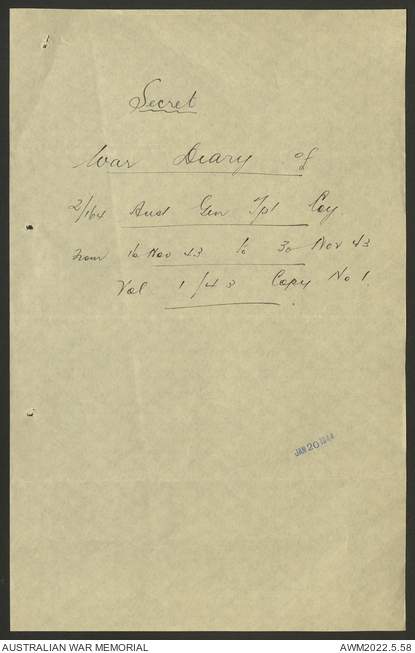 Secret
War Diary of
2/164 Aust Gen Tpt Coy.
From 16 Nov 43 to 30 Nov 43
Vol 1/43 Copy No 1.
JAN 20 1944
AUSTRALIAN WAR MEMORIAL
AWM2022.5.58